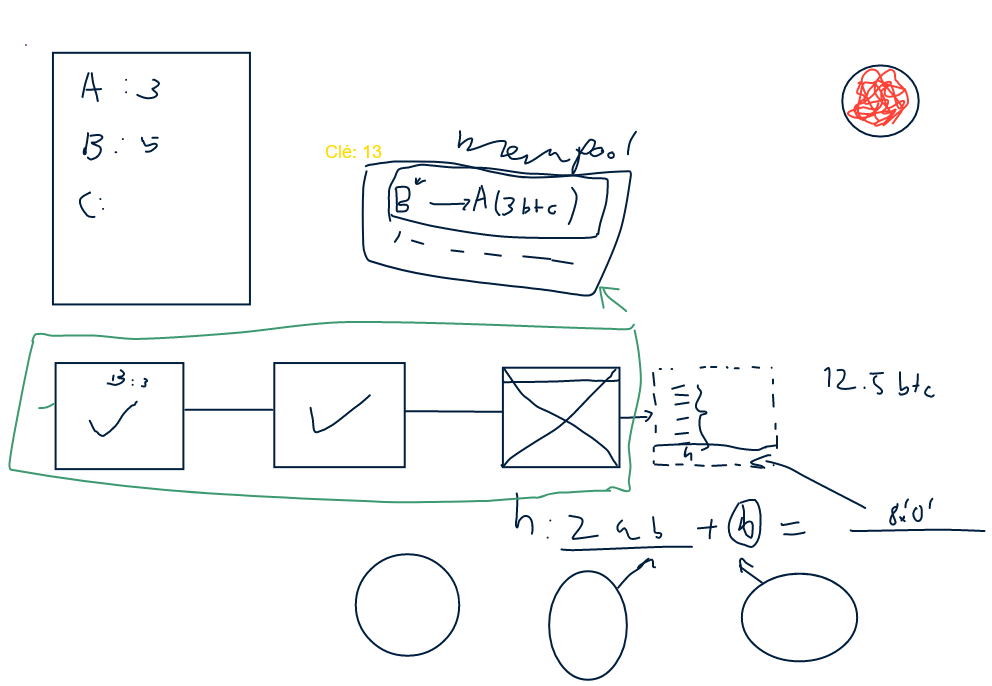 A : 3
B : 5
C :
Clé: 13
mempool
B → A (3 btc)
B : 3
12.5 btc
h
8x'0'
h : 2 a b + b =